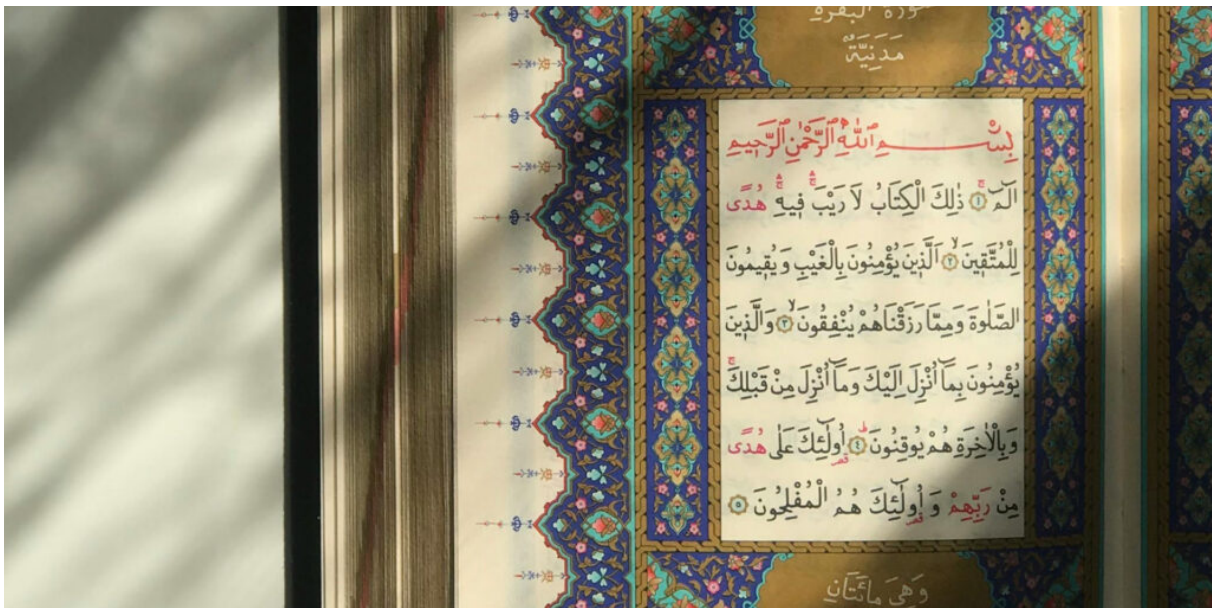 سورة البقرة
مَدَنِيَّةٌ
بِسْــــمِ اللّٰهِ الرَّحْمٰنِ الرَّحٖيمِ
الٓمٓ ۚ ﴿١﴾ ذٰلِكَ الْكِتَابُ لَا رَيْبَ ۚۛ فٖيهِ ۚۛ هُدًى
لِلْمُتَّقٖينَ ۙ ﴿٢﴾ اَلَّذٖينَ يُؤْمِنُونَ بِالْغَيْبِ وَيُقٖيمُونَ
الصَّلٰوةَ وَمِمَّا رَزَقْنَاهُمْ يُنْفِقُونَ ۙ ﴿٣﴾ وَالَّذٖينَ
يُؤْمِنُونَ بِمَٓا اُنْزِلَ اِلَيْكَ وَمَٓا اُنْزِلَ مِنْ قَبْلِكَ ۚ
وَبِالْاٰخِرَةِ هُمْ يُوقِنُونَ ۜ ﴿٤﴾ اُولٰٓئِكَ عَلٰى هُدًى
مِنْ رَبِّهِمْ وَ اُولٰٓئِكَ هُمُ الْمُفْلِحُونَ ﴿٥﴾
وَهِيَ مِائَتَانِ